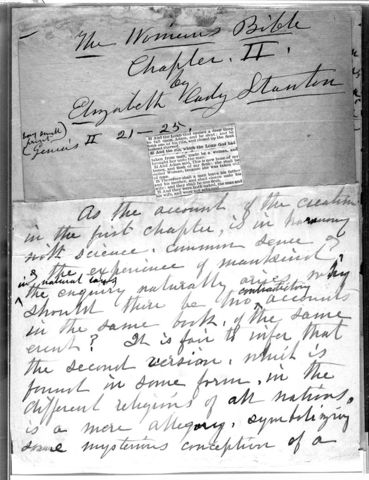 The Womens Bible
Chapter. II.
by
Elizabeth Cady Stanton
Genesis II 21–25.
very small
print
21 And the Lord God caused a deep sleep
22 And the rib, which the Lord God had
taken from man, made he a woman, and
brought her unto the man.
23 And Adam said, This is now bone of my
bones, and flesh of my flesh: she shall be
called Woman, because she was taken out
24 Therefore shall a man leave his father
and his mother, and shall cleave unto his
wife: and they shall be one flesh.
25 And they were both naked, the man and
As the account of the creation
in the first chapter, is in harmony
with science, common sense &
the experience of mankind
in natural laws
the enquiry naturally arises, why
should there be two contradictory accounts
in the same book, of the same
event? It is fair to infer that
the second version, which is
found in some form, in the
different religions of all nations,
is a mere allegory, symbolizing
some mysterious conception of a